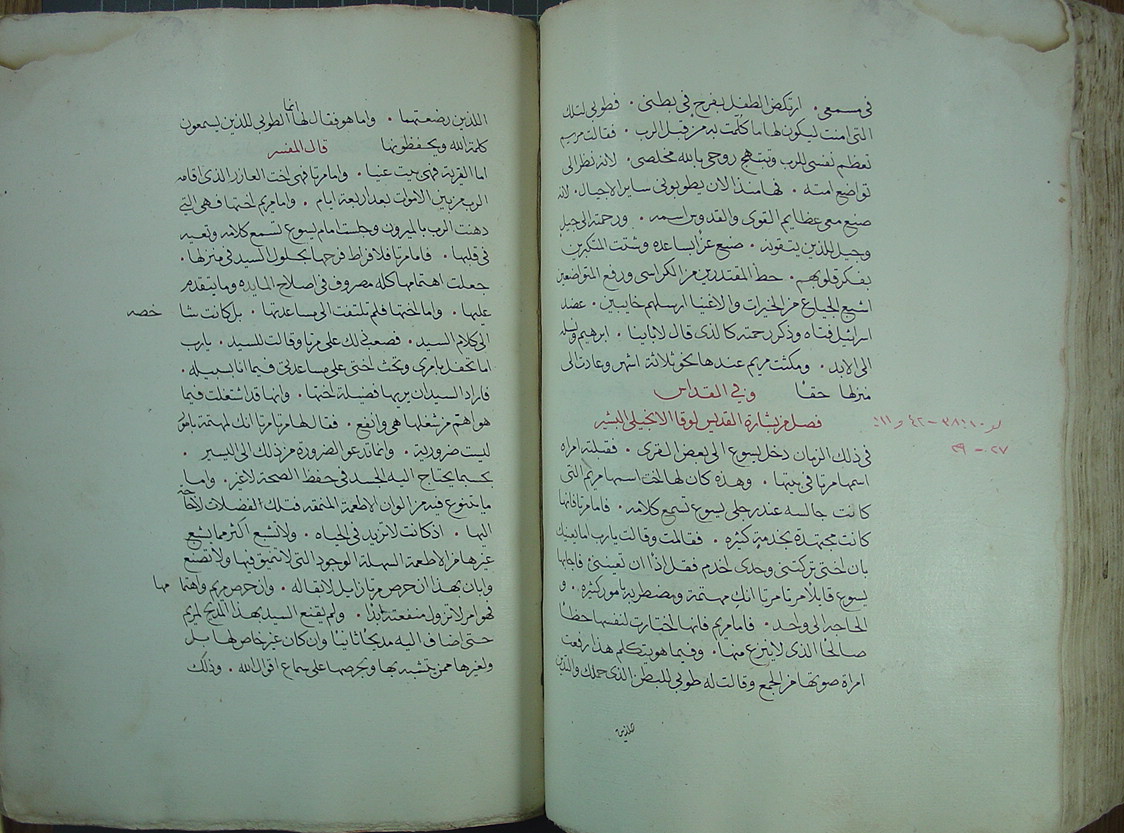 في سمعي. ارتكض الطفل بفرح في بطني. فطوبي لتلك
التي امنت ليكون لها ما كلمت به من قبل الرب. فقالت مريم
تعظم نفسي للرب وتبتهج روحي بالله مخلصي. لانه نظر الى
تواضع امته. فها منذ الان يطوبوني ساير الاجيال. لانه
صنع معي عظايم القوى والقدوس اسمه. ورحمته الى جيل
وجيل للذين يتقونه. صنع عزا بساعده وشتت المتكبرين
بفكر قلوبهم. حط المقتدرين من الكراسي ورفع المتواضعين
اشبع الجياع من الخيرات والاغنيا ارسلهم خايبين. عضد
اسرائيل فتاه وذكر رحمته كالذي قال لابائنا. ابرهيم ونسله
الى الابد. ومكثت مريم عندها نحو ثلاثة اشهر وعادت الى
منزلها حقا وفي القداس
فصل من بشارة القديس لوقا الانجيلي البشير
لو ١٠: ٣٨ - ٤٢ و ١١:
٢٧ - ٢٩
في ذلك الزمان دخل يسوع الى بعض القرى. فقبلته امراه
اسمها مرتا في بيتها. وهذه كان لها اخت اسمها مريم التي
كانت جالسه عند رجلي يسوع تسمع كلامه. فاما مرتا فانها
كانت مجتهدة بخدمة كثيره. فقامت وقالت يا رب اما يعنيك
بان اختي تركتني وحدي اخدم فقل اذا ان تعينني فاجابها
يسوع قايلا مرتا مرتا انك مهتمة ومضطربة بامور كثيره. و
الحاجه الى واحد. فاما مريم فانها اختارت لنفسها حظا
صالحا الذي لا ينزع منها. وفيما هو يتكلم هذا رفعت
امراة صوتها من الجمع وقالت له طوبى للبطن الذي حملك والثديين
اللذين رضعتهما. واما هو فقال لها انما الطوبى للذين يسمعون
كلمة الله ويحفظونها قال المفسر
اما القرية فهي بيت عنيا. واما مرتا فهي اخت العازر الذي اقامه
الرب من بين الاموات بعد اربعة ايام. واما مريم اختها فهي التي
دهنت الرب بالميرون وجلست امام يسوع تسمع كلامه وتعيه
في قلبها. فاما مرتا فلافراط فرحها بحلول السيد في منزلها.
جعلت اهتمامها كله مصروف في اصلاح المايده وما يتقدم
عليها. واما اختها فلم تلتفت الى مساعدتها. بل كانت شاخصه
الى كلام السيد. فصعب ذلك على مرتا وقالت للسيد. يا رب
اما تحفل بامري وتحث اختي على مساعدتي فيما انا بسبيله.
فاراد السيد ان يريها فضيلة اختها. وانها قد اشتغلت فيما
هو اهم من شغلها هي وانفع. فقال لها مرتا مرتا انك لمهتمة بامور
ليست ضرورية. وانما تدعو الضرورة من ذلك الى اليسير.
بحسبما يحتاج اليه الجسد في حفظ الصحة لا غير. واما
ما يتنوع فيه من الوان الاطعمة المنمقه فتلك الفضلات لا حاجة
اليها. اذ كانت لا تزيد في الحياه. ولا تشبع اكثر مما يشبع
غيرها من الاطعمة السهلة الوجود التي لا تنميق فيها ولا تصنع
وابان بهذا ان حرص مرتا زايل لا بقا له. وان حرص مريم واهتمامها
فهو امر لا تزول منفعته ابدا. ولم يقنع السيد بهذا المديح لمريم
حتى اضاف اليه مديحا ثانيا وان كان غير خاص لها بل
ولغيرها ممن تشبه بها وبحرصها على سماع اقوال الله. وذلك